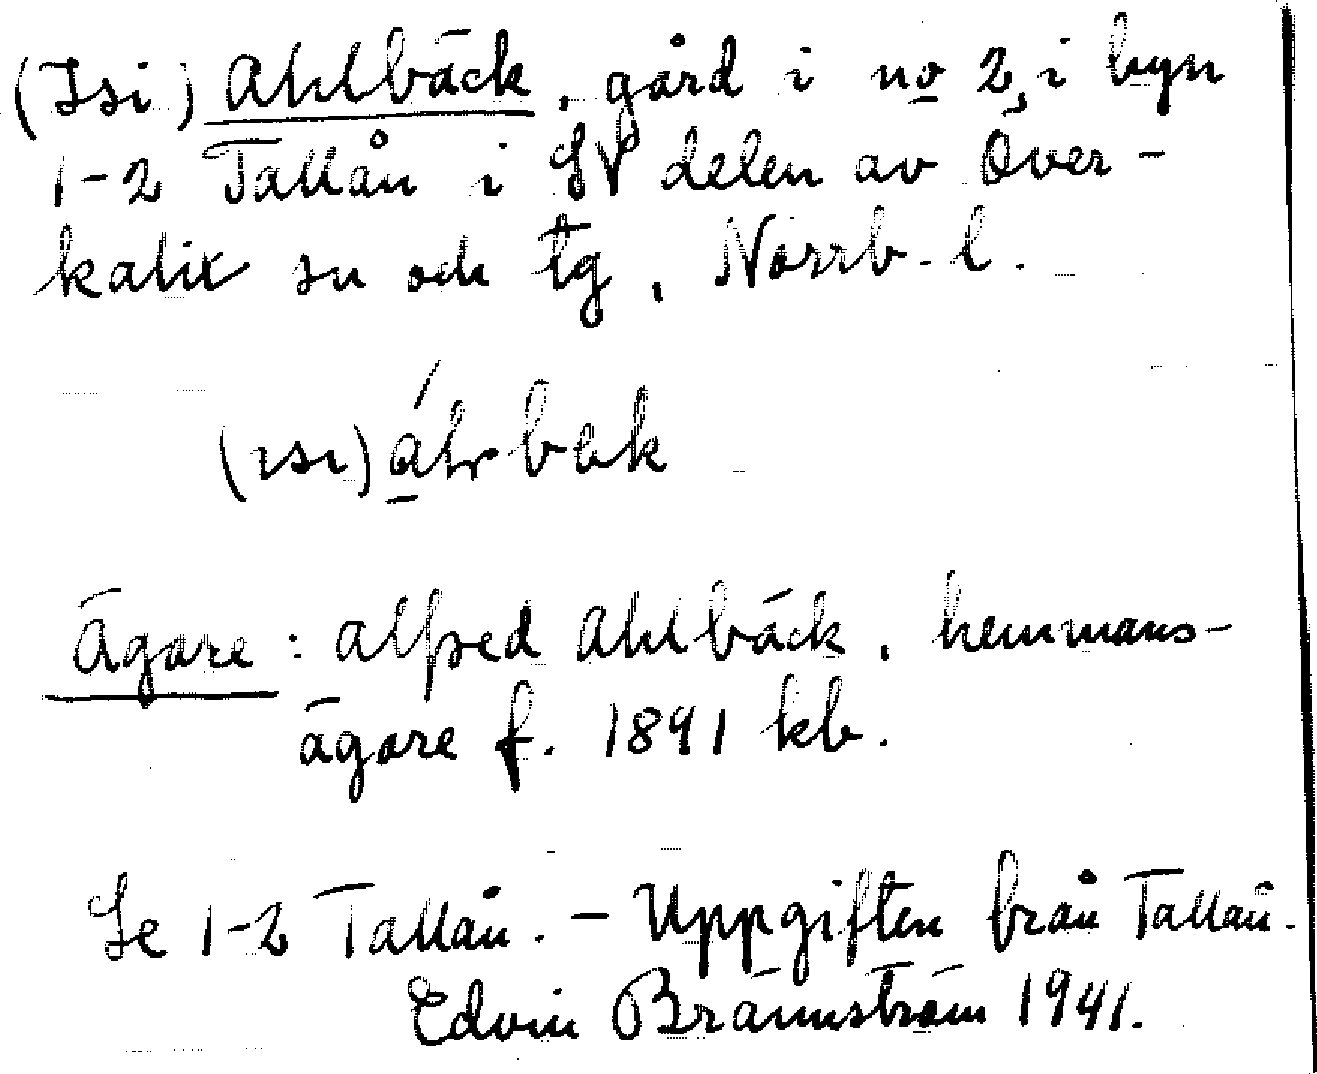 (Isi) Ahlbäck, gård i no 2, i byn
1-2 Tallån i SV delen av Över-
kalix sn och tg, Norrb. l.
Ägare: Alfred Ahlbäck, hemmans-
ägare f. 1891 kb.
Se 1-2 Tallån. - Uppgiften från Tallån.
Edvin Brännström 1941.